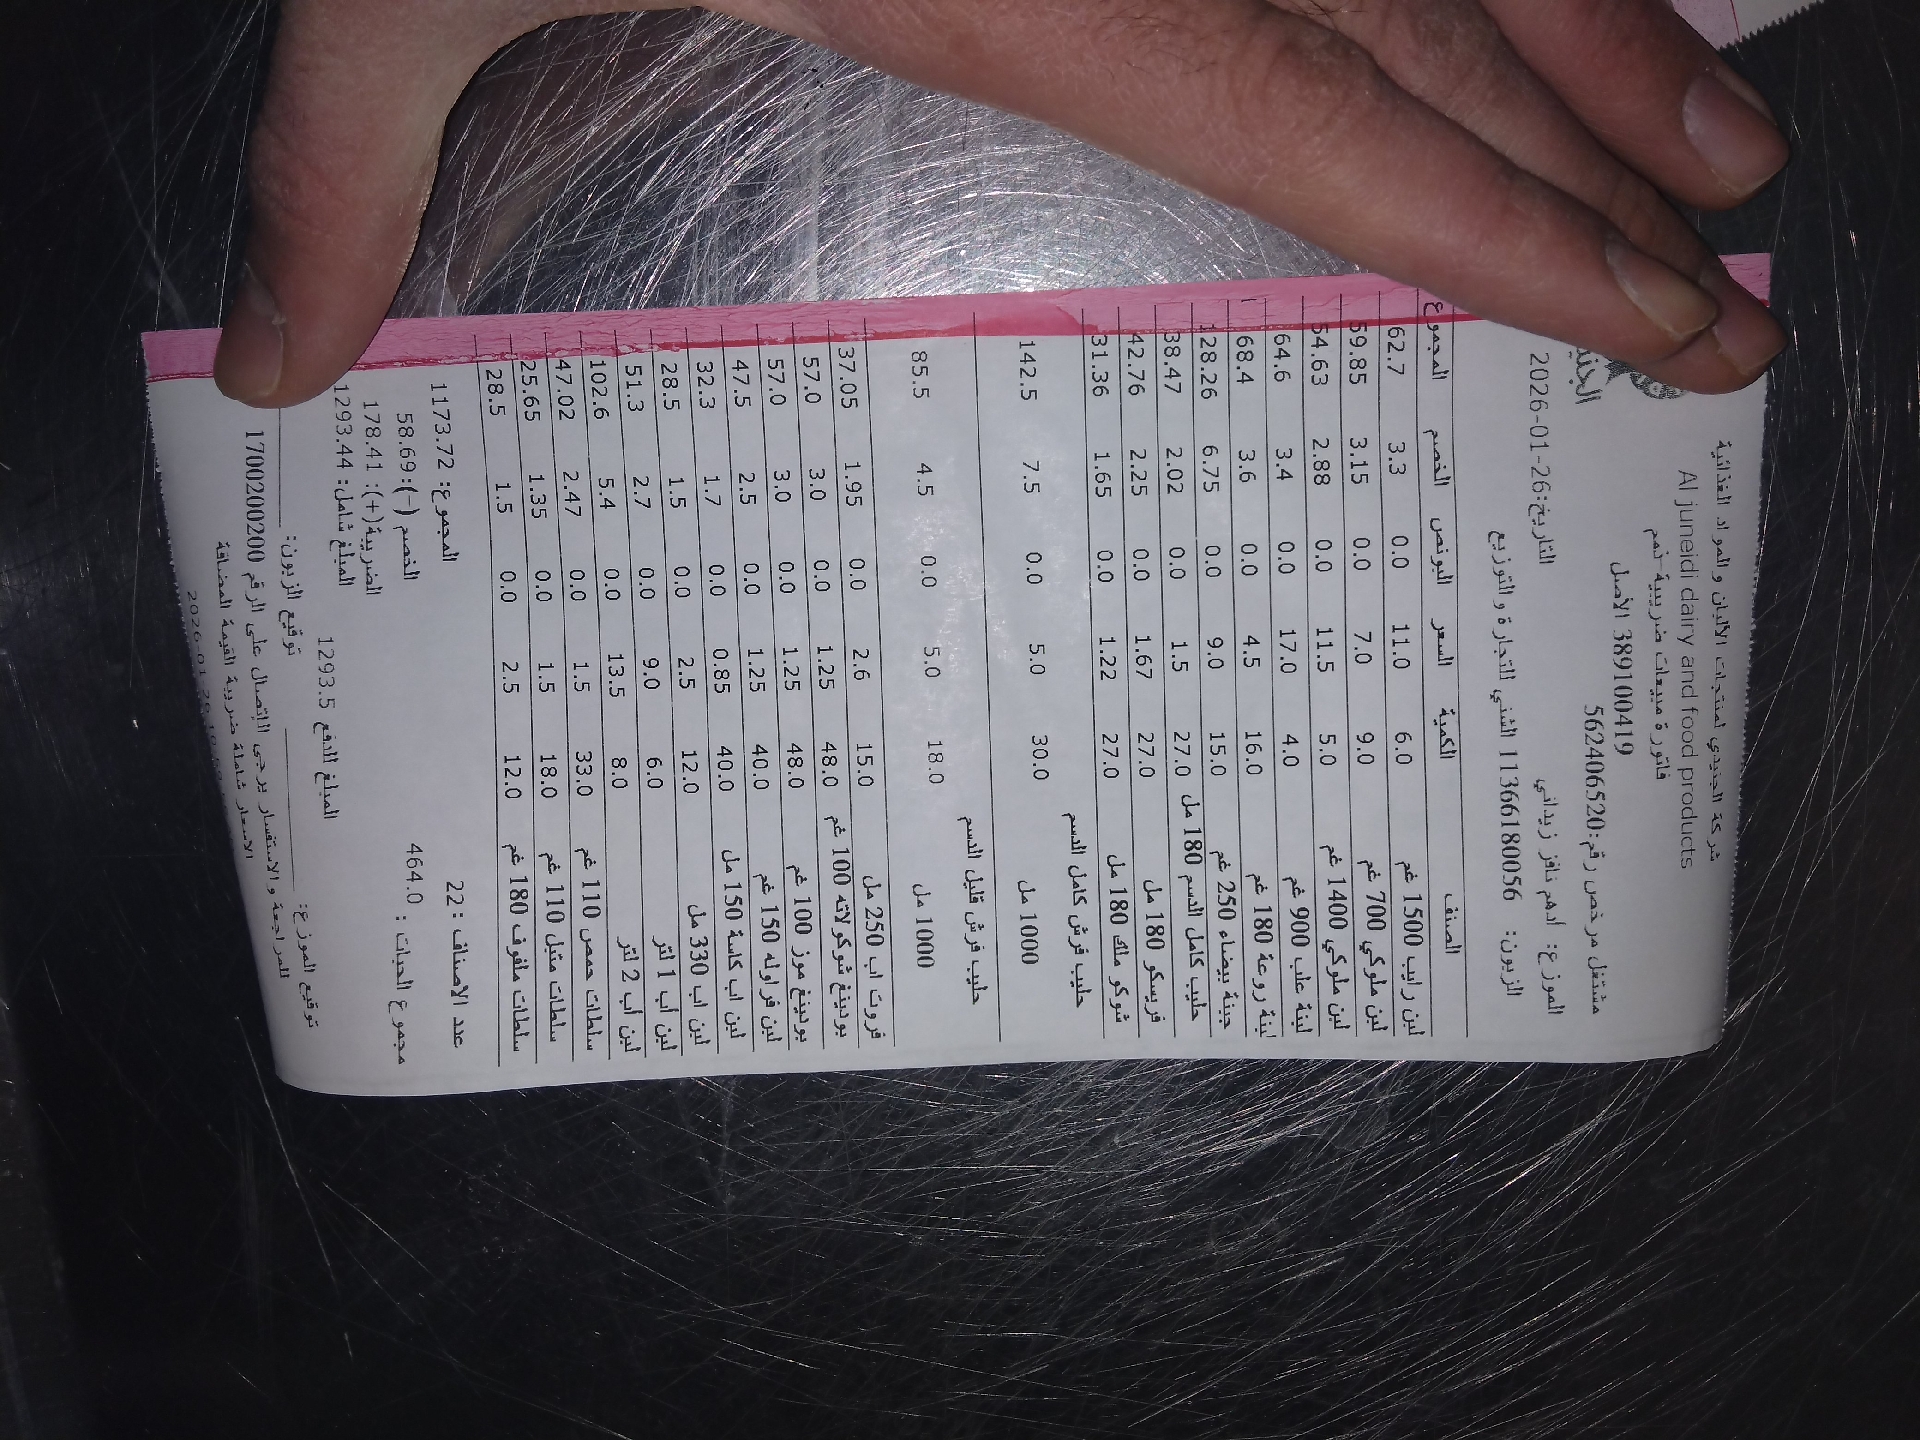 شركة الجنيدي لمنتجات الألبان و المواد الغذائية
Al juneidi dairy and food products
فاتورة مبيعات ضريبية -ذمم
389100419 الأصل
مشتغل مرخص رقم:562406520
التاريخ:26-01-2026 الموزع: أدهم نافز زيداني
الزبون: 11366180056 الشني للتجارة و التوزيع
الصنف الكمية السعر البونص الخصم المجموع
لبن رايب 1500 غم 6.0 11.0 0.0 3.3 62.7
لبن ملوكي 700 غم 9.0 7.0 0.0 3.15 59.85
لبن ملوكي 1400 غم 5.0 11.5 0.0 2.88 54.63
لبنة علب 900 غم 4.0 17.0 0.0 3.4 64.6
لبنة روعة 180 غم 16.0 4.5 0.0 3.6 68.4
جبنة بيضاء 250 غم 15.0 9.0 0.0 6.75 128.26
حليب كامل الدسم 180 مل 27.0 1.5 0.0 2.02 38.47
فريسكو 180 مل 27.0 1.67 0.0 2.25 42.76
شوكو ملك 180 مل 27.0 1.22 0.0 1.65 31.36
حليب فرش كامل الدسم
1000 مل 30.0 5.0 0.0 7.5 142.5
حليب فرش قليل الدسم
1000 مل 18.0 5.0 0.0 4.5 85.5
فروت اب 250 مل 15.0 2.6 0.0 1.95 37.05
بودينغ شوكولاته 100 غم 48.0 1.25 0.0 3.0 57.0
بودينغ موز 100 غم 48.0 1.25 0.0 3.0 57.0
لبن فراوله 150 غم 40.0 1.25 0.0 2.5 47.5
لبن اب كاسة 150 مل 40.0 0.85 0.0 1.7 32.3
لبن اب 330 مل 12.0 2.5 0.0 1.5 28.5
لبن أب 1 لتر 6.0 9.0 0.0 2.7 51.3
لبن أب 2 لتر 8.0 13.5 0.0 5.4 102.6
سلطات حمص 110 غم 33.0 1.5 0.0 2.47 47.02
سلطات متبل 110 غم 18.0 1.5 0.0 1.35 25.65
سلطات ملفوف 180 غم 12.0 2.5 0.0 1.5 28.5
عدد الاصناف : 22 المجموع: 1173.72
مجموع الحبات : 464.0 الخصم (-):58.69
الضريبة(+): 178.41
المبلغ شامل: 1293.44
المبلغ للدفع 1293.5
توقيع الموزع: توقيع الزبون:
للمراجعة و الاستفسار يرجى الاتصال على الرقم 1700200200
الاسعار شاملة ضريبة القيمة المضافة